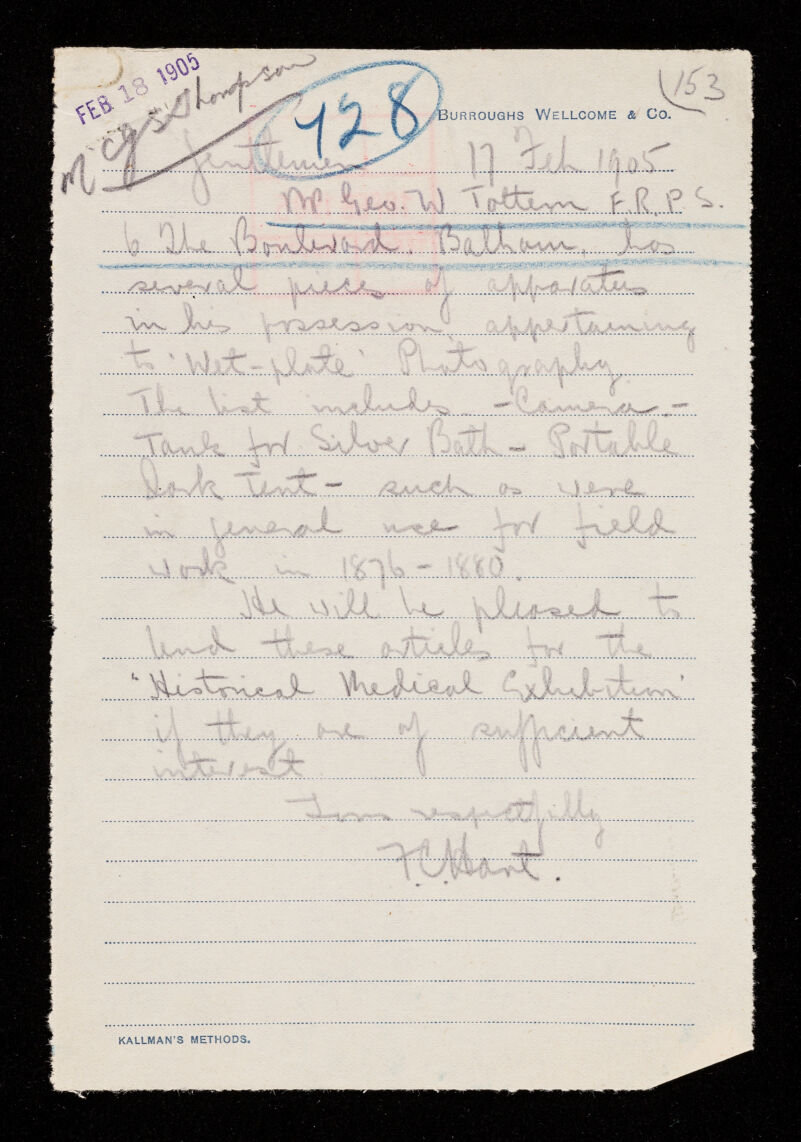 FEB 18 1905
Mr C.J.S. Thompson
428
153
BURROUGHS WELLCOME & CO.
Gentlemen 17 Feb 1905
Mr Geo. W Tottem F.R.P.S.
6 The Boulevard, Balham, has
several pieces of apparatus
in his possession, appertaining
to 'Wet-plate' Photography
The list includes - Camera -
Tank for Silver Bath - Portable
Dark Tent - such as were
in general use for field
work in 1876 - 1880.
He will be pleased to
lend these articles for the
'Historical Medical Exhibition'
if they are of sufficient
interest
Yours respectfully
F.C. Hart.
KALLMAN'S METHODS.